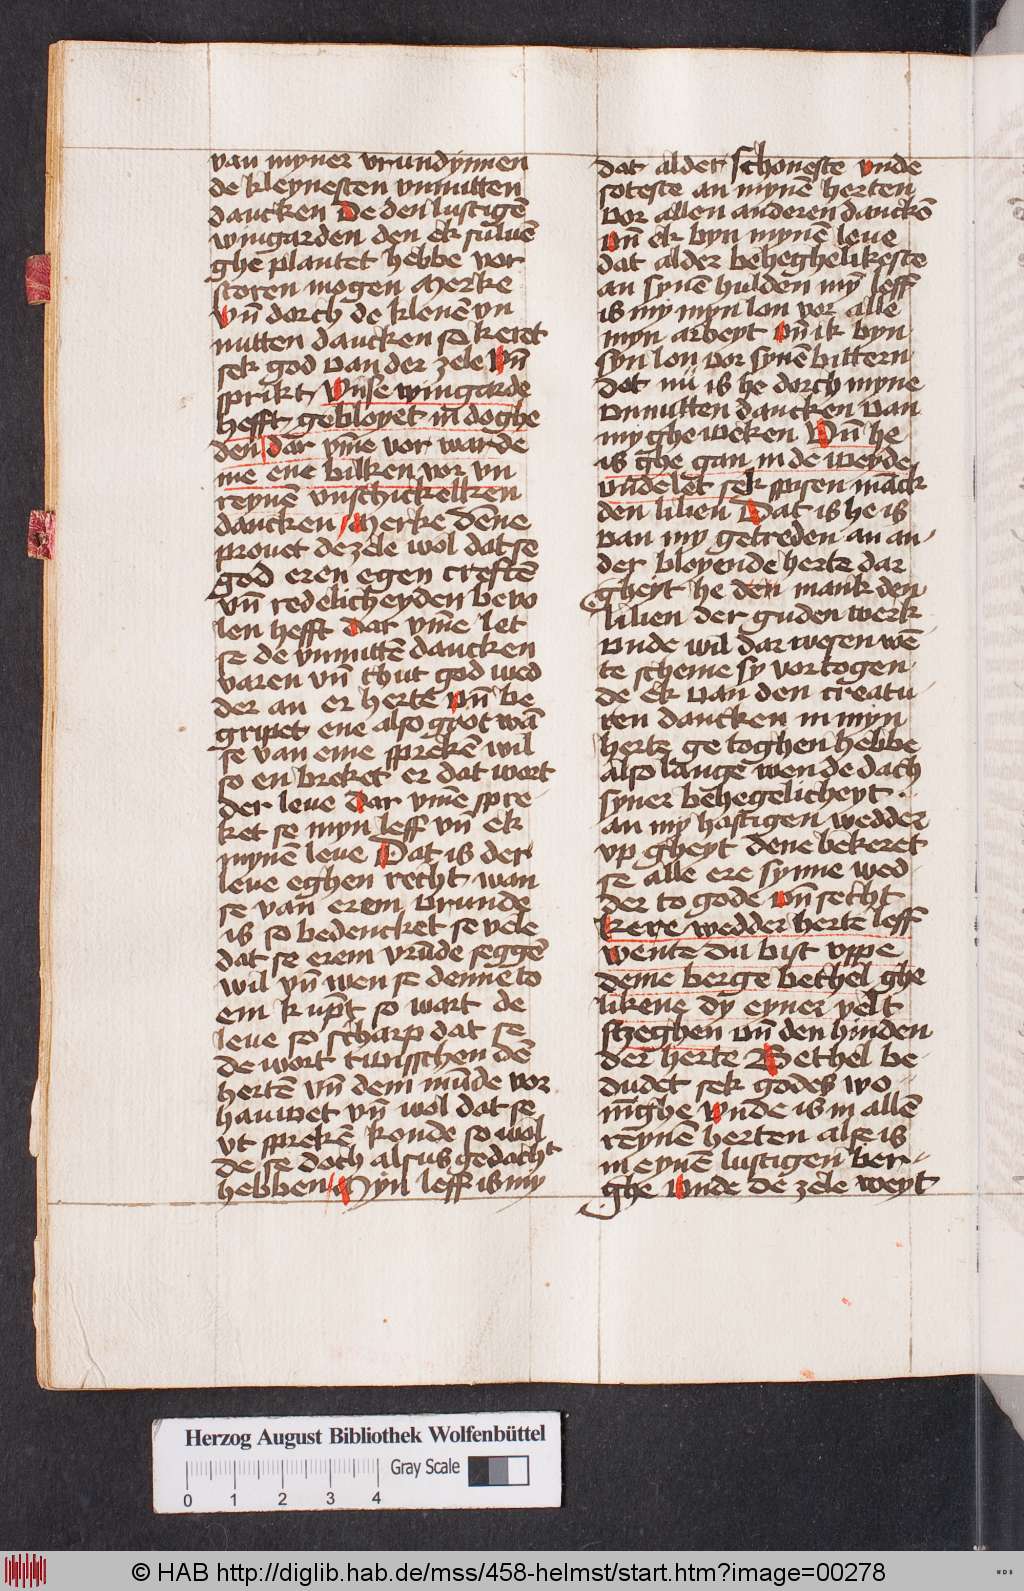 van myner vrundynnen
de kleynesten vnnutten
dancken De den lustigē
wingarden den ek suluē
ghe plantet hebbe vor
storen mogen Merke
Vn̄ dorch de klenē vn
nutten dancken so keret
sek god van der zele Vn̄
sprikt Vnse wingarde
hefft gebloyet in doghe
den dar vm̄e vor warde
me ene bilken vor vn
reynē vnschickelken
dancken Merke dēne
prouet de zele wol dat se
god eren egen crefftē
vn̄ redelicheyden bevo
len hefft dar vm̄e let
se de vnnuttē dancken
varen vn̄ thut god wed
der an er herte vn̄ be
gripet ene also grot wā
se van eme sprekē wil
so en breket er dat wort
der leue dar vm̄e spre
ket se myn leff vn̄ ek
mynē leue Dat is der
leue eghen recht wan
se van erem vrunde
is so bedencket se vele
dat se erem vrūde seggē
wil vn̄ wen se denne to
em kūpt so wart de
leue so scharp dat se
de wort twisschen dē
hertē vn̄ dem mūde vor
hauwet vn̄ wol dat se
vt sprekē konde so wol
de se doch alsus gedacht
hebben Myn leff is my
dat alder schoneste vnde
soteste an mynē herten
vor allen anderen danckē
vn̄ ek byn mynē leue
dat alder behegheli keste
an synē hulden mȳ leff
is my myn lon vor alle
myn arbeyt vn̄ ik byn
syn lon vor synē bittern
dot nū is he dorch myne
vnnutten dancken van
my ghe weken Vn̄ he
is ghe gan in de weyde
vn̄de let sek spisen mā̄ck
den lilien Dat is he is
van my getreden an an
der bloyende herte dar
gheyt he den mank den
lilien der guden werk
vnde wil dar wesen wē
te scheme sy vortogen
de ek van den creatu
ren dancken in myn
herte ge toghen hebbe
also lange wen de dach
syner behegelicheyt
an my hastigen wedder
vp gheyt dene bekeret
se alle ere synne wed
der to gode vn̄ secht
kere wedder herte leff
wente du bist vppe
deme berge bethel ghe
likene dȳ eyner yelt
stzeghen vn̄ den hinden
der herte Bethel be
dudet sek godes wo
nīghe vnde is in allē
reynē herten alse is
in eynē lustigen ber
ghe Vnde de zele weyt
Herzog August Bibliothek Wolfenbüttel
Gray Scale
0 1 2 3 4
© HAB http://diglib.hab.de/mss/458-helmst/start.htm?image=00278